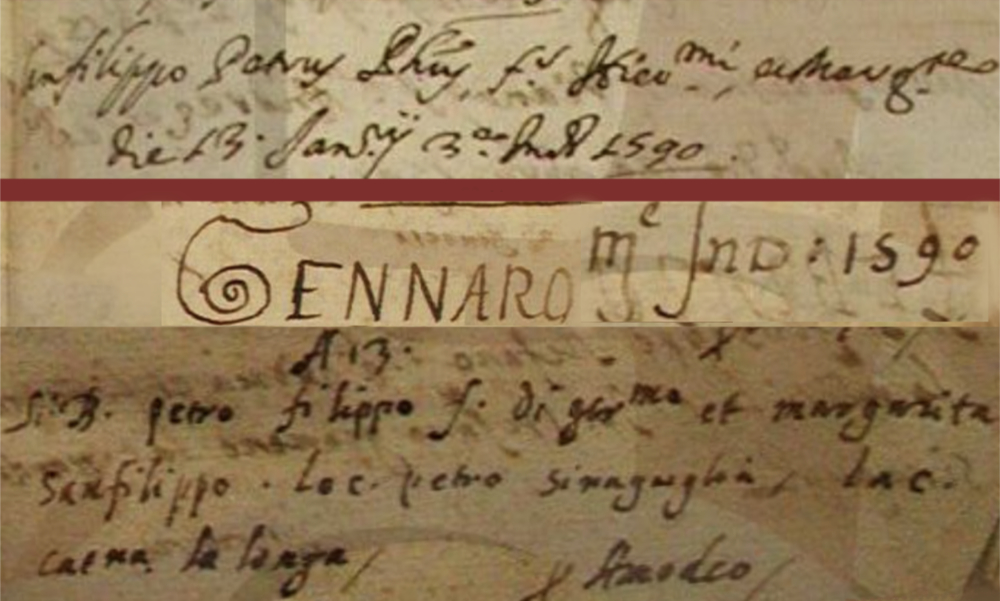 Sanfilippo Petrus Phūs, f.s Hieo.mi, et Marg.tae
die 13. Jan.rij 3.ae Ind 1590.
GENNARO me IND: 1590
A 13.
Si B. petro filippo f. di gir.mo et margarita
sanfilippo. lo c. petro sinaguglia, la c.
catna la longa / p Amodeo